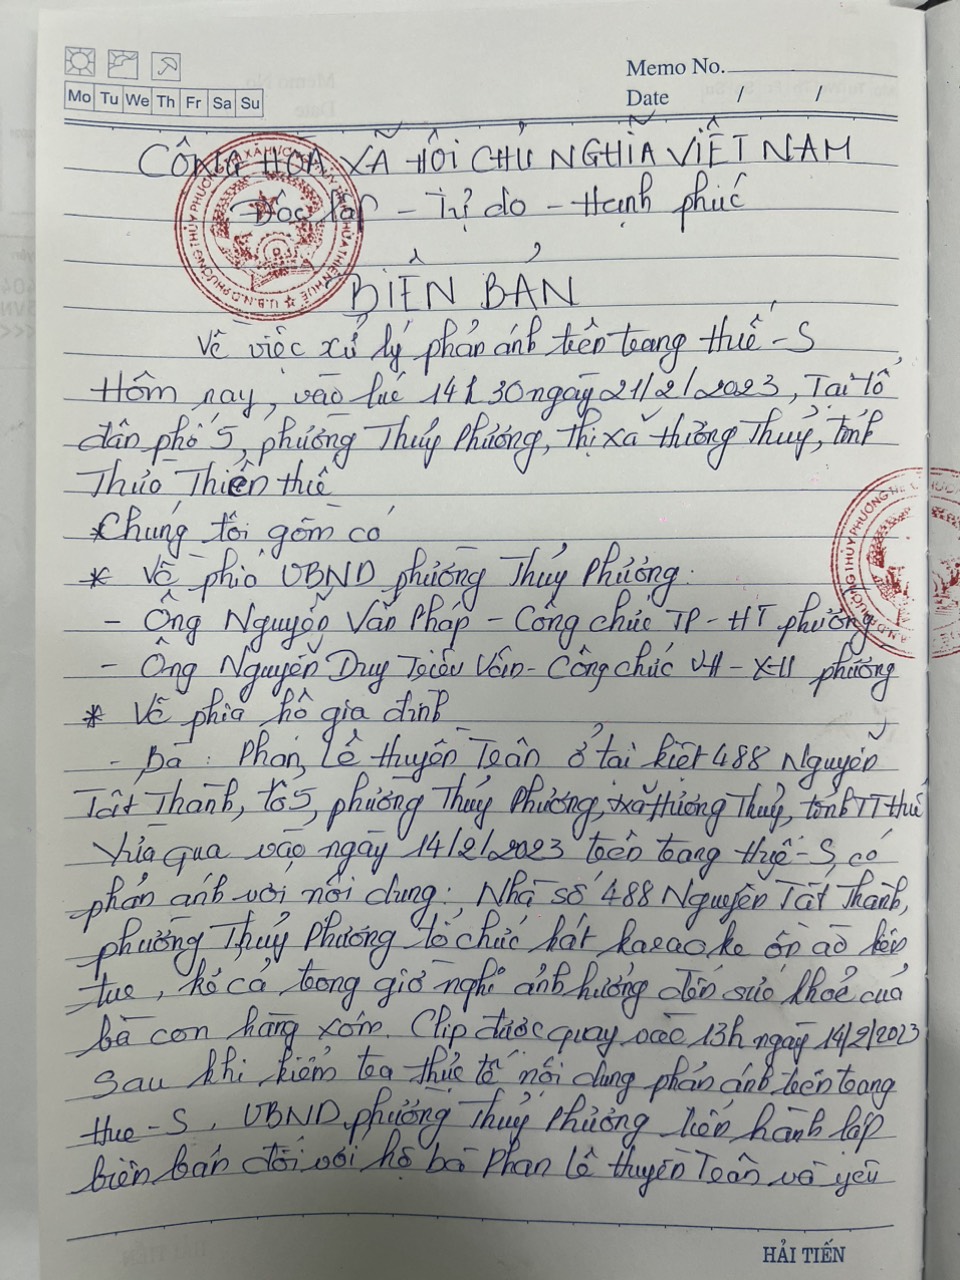 Memo No.
Date / /
Mo Tu We Th Fr Sa Su
CỘNG HOÀ XÃ HỘI CHỦ NGHĨA VIỆT NAM
Độc lập - Tự do - Hạnh phúc
BIÊN BẢN
Về việc xử lý phản ánh trên trang Huế-S
Hôm nay, vào lúc 14h30 ngày 21/2/2023, Tại tổ
dân phố 5, phường Thủy Phương, thị xã Hương Thuỷ, tỉnh
Thừa Thiên Huế
* Chúng tôi gồm có
* Về phía UBND phường Thủy Phương:
- Ông Nguyễn Văn Pháp - Công chức TP-HT phường
- Ông Nguyễn Duy - Công chức VH-XH phường
* Về phía hộ gia đình
- Bà: Phan Lê Huyền Trân ở tại kiệt 488 Nguyễn
Tất Thành, tổ 5, phường Thủy Phương, txã Hương Thuỷ, tỉnh TT Huế
Vừa qua vào ngày 14/2/2023 trên trang Huế-S, có
phản ánh với nội dung: Nhà số 488 Nguyễn Tất Thành,
phường Thủy Phương tổ chức hát karaoke ồn ào liên
tục, kể cả trong giờ nghỉ ảnh hưởng đến sức khoẻ của
bà con hàng xóm. Clip được quay vào 13h ngày 14/2/2023
Sau khi kiểm tra thực tế nội dung phản ánh trên trang
Hue-S, UBND phường Thuỷ Phương tiến hành lập
biên bản đối với hộ bà Phan Lê Huyền Trân và yêu
HẢI TIẾN